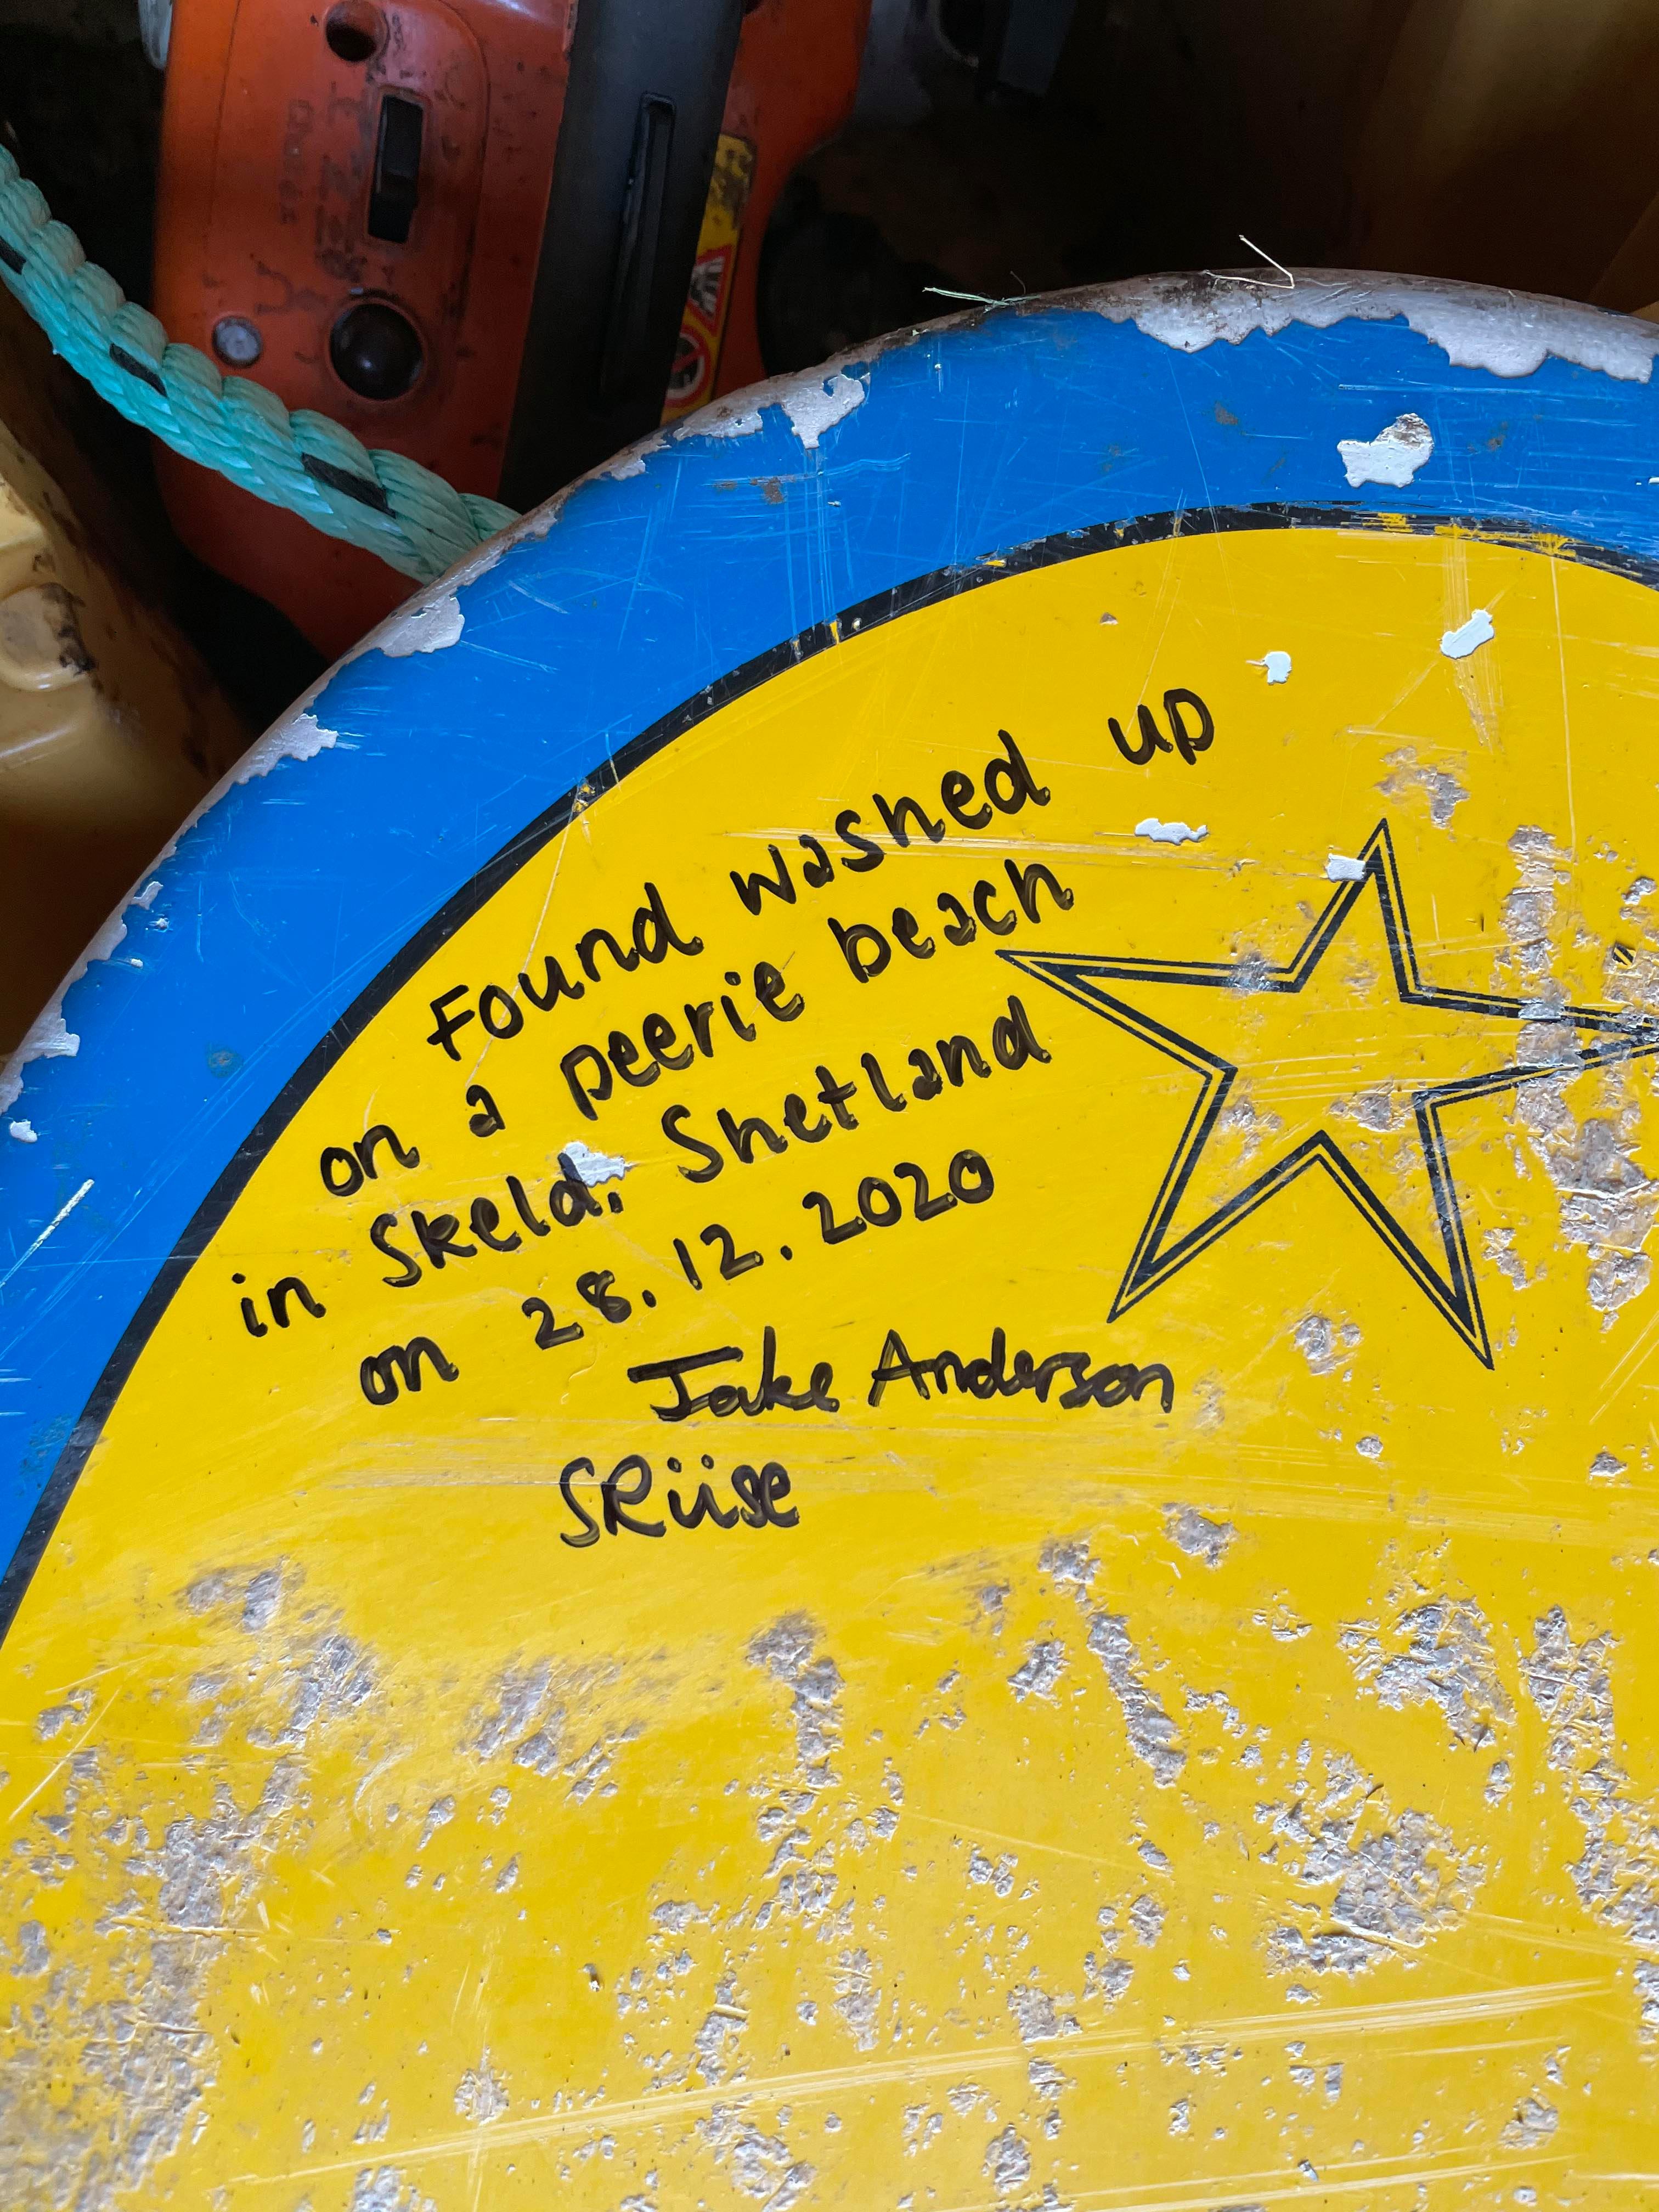 Found washed up
on a peerie beach
in Skeld, Shetland
on 28.12.2020
Jake Anderson